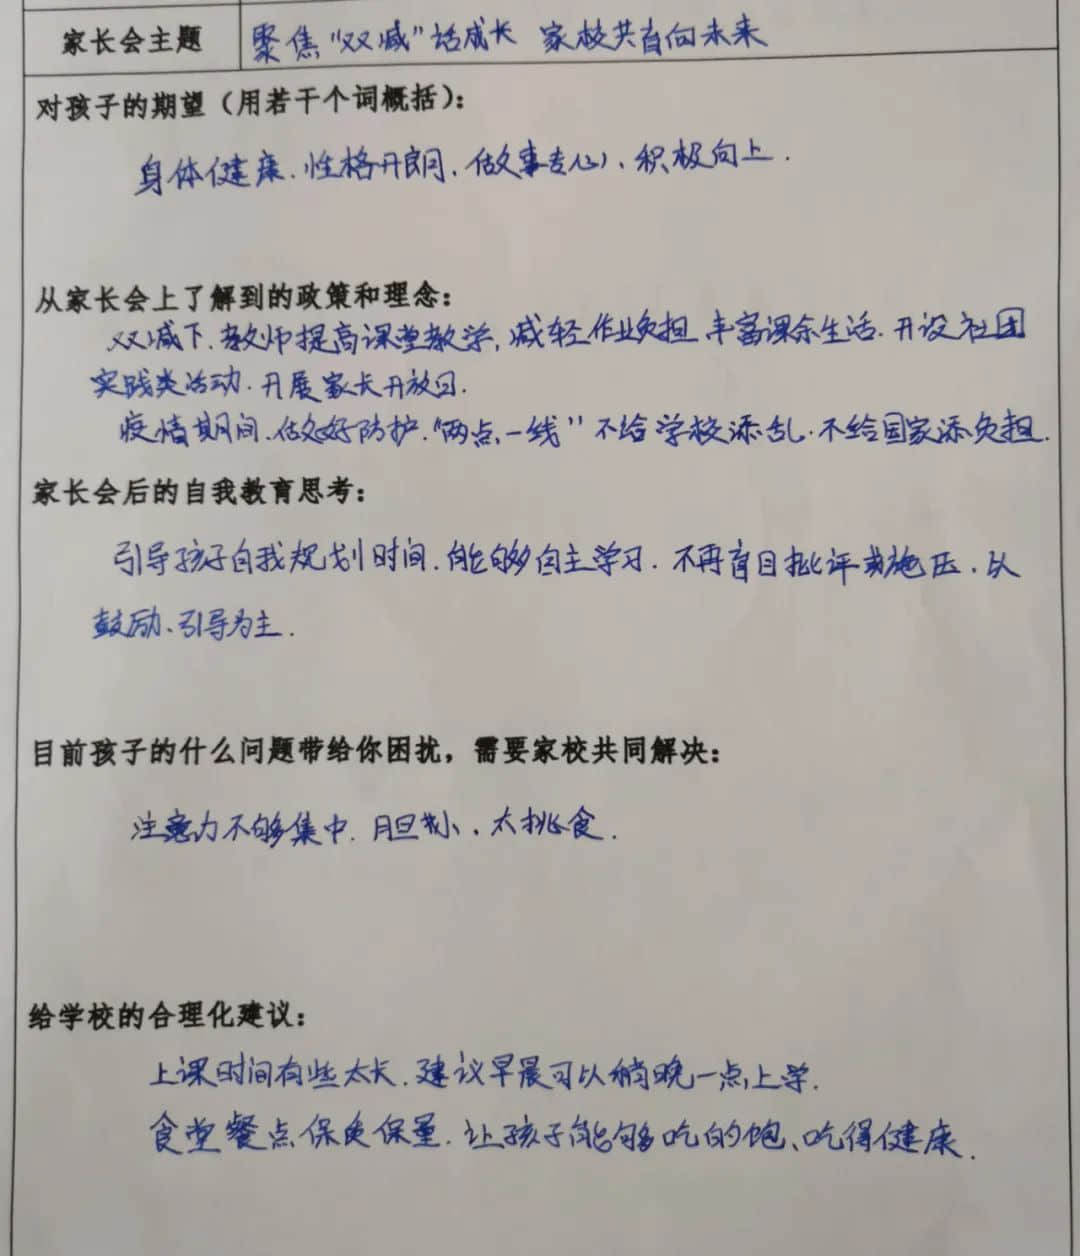 家长会主题 聚焦“双减”话成长 家校共育向未来
对孩子的期望（用若干个词概括）：
身体健康、性格开朗、做事专心、积极向上.
从家长会上了解到的政策和理念：
双减下.教师提高课堂教学,减轻作业负担.丰富课余生活.开设社团
实践类活动.开展家长开放日.
疫情期间.做好防护.“两点一线”不给学校添乱.不给国家添负担.
家长会后的自我教育思考：
引导孩子自我规划时间.能够自主学习.不再盲目批评或施压.以
鼓励、引导为主.
目前孩子的什么问题带给你困扰，需要家校共同解决：
注意力不够集中.胆小、太挑食.
给学校的合理化建议：
上课时间有些太长.建议早晨可以稍晚一点上学.
食堂餐点保质保量.让孩子能够吃的饱、吃得健康.